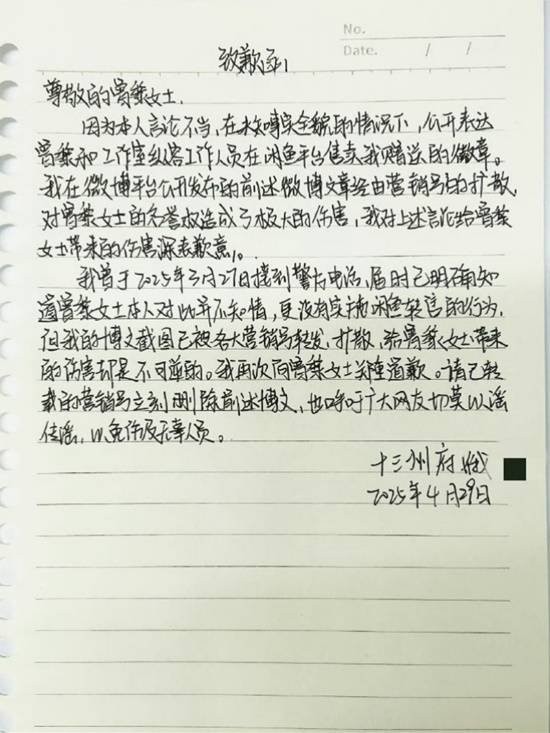 No.
Date. / /
致歉函
尊敬的曾黎女士.
因为本人言论不当,在未知晓事件全貌的情况下,公开表达
曾黎和工作室纵容工作人员在闲鱼平台售卖我赠送的徽章。
我在微博平台公开发布的前述微博文章经由营销号的扩散,
对曾黎女士的名誉权造成了极大的伤害,我对上述言论给曾黎
女士带来的伤害深表歉意。
我曾于2025年3月27日接到警方电话,届时已明确知
道曾黎女士本人对此并不知情,更没有实施闲鱼转售的行为,
但我的博文截图已被各大营销号转发、扩散,给曾黎女士带来
的伤害却是不可逆的。我再次向曾黎女士郑重道歉。请已转
载的营销号立刻删除前述博文,也呼吁广大网友切莫以谣
传谣,以免伤及无辜人员。
十三州府
2025年4月29日